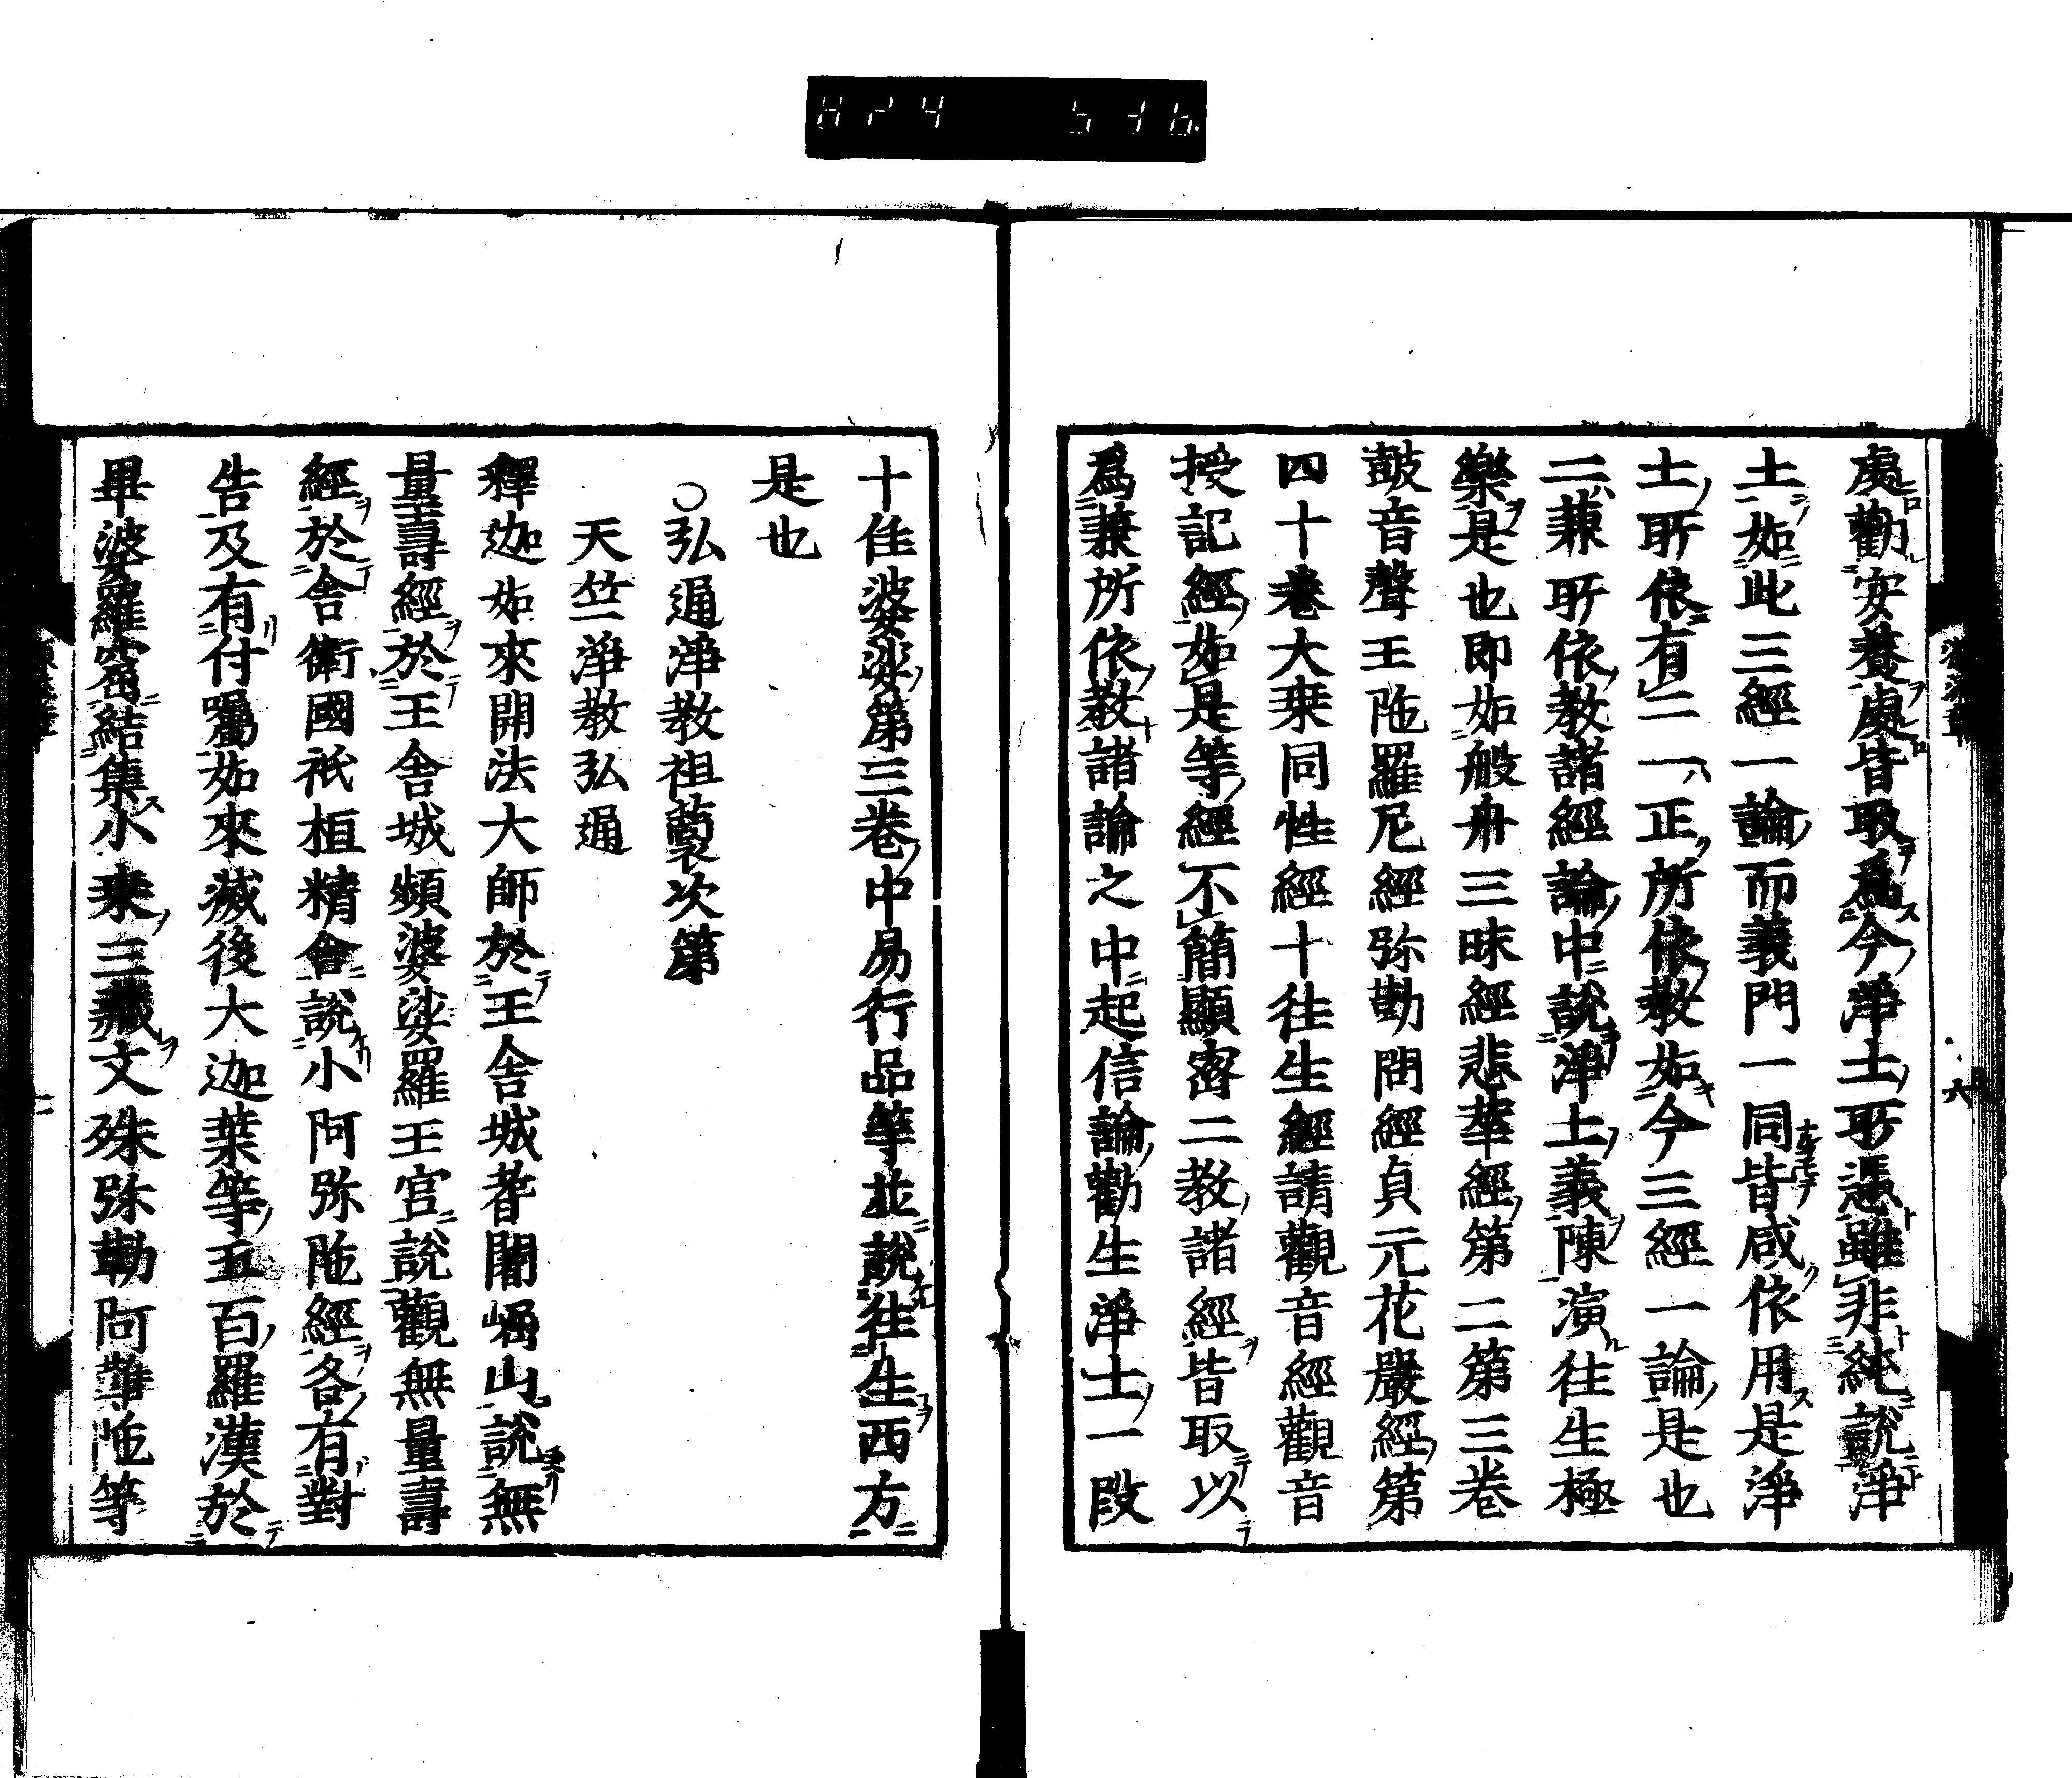 處勸安養處皆取爲今淨土所憑雖非純説淨
土如此三經一論而義門一同皆咸依用是淨
土所依有二一正所依教如今三經一論是也
二兼所依教諸經論中説淨土義陳演往生極
樂是也即如般舟三昧經悲華經第二第三卷
皷音聲王陁羅尼經弥勒問經貞元花嚴經第
四十卷大乗同性經十往生經請觀音經觀音
授記經如是等經不簡顯密二教諸經皆取以
爲兼所依教諸論之中起信論勸生淨土一段
十住婆娑第三卷中易行品等並説往生西方
是也
○弘通淨教祖蘰次第
天竺淨教弘通
釋迦如來開法大師於王舍城耆闍崛山説無
量壽經於王舍城頻婆娑羅王宮説觀無量壽
經於舍衛國祇桓精舍説小阿弥陁經各有對
告及有付囑如來滅後大迦葉等五百羅漢於
畢婆羅窟結集小乗三藏文殊弥勒阿難陁等
八
874 516